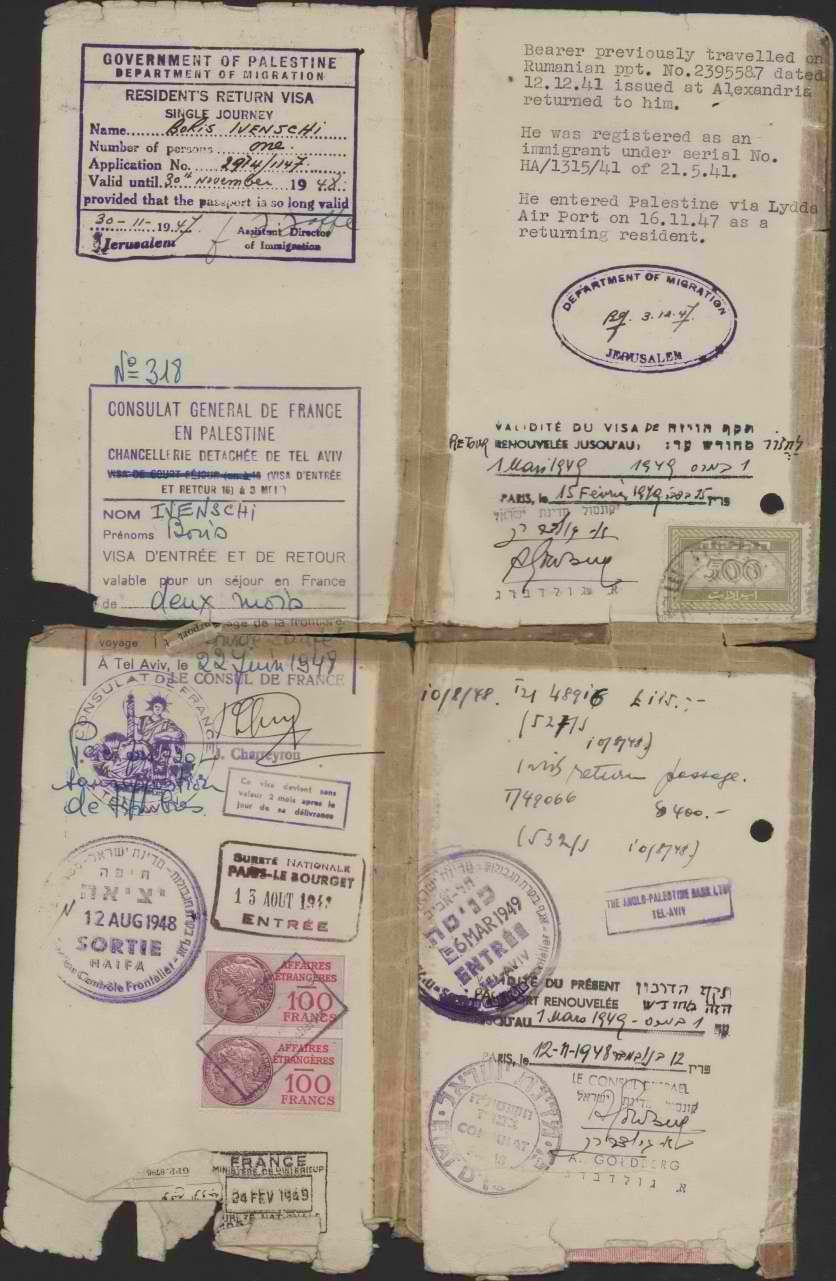 GOVERNMENT OF PALESTINE
DEPARTMENT OF MIGRATION
RESIDENT'S RETURN VISA
SINGLE JOURNEY
Name Boris IVENSCHI
Number of persons one.
Application No. 2914/1147
Valid until 30th November 1948
provided that the passport is so long valid
30-11-1947
Jerusalem
Assistant Director
of Immigration
Bearer previously travelled on
Rumanian ppt. No.2395587 dated
12.12.41 issued at Alexandria
returned to him.
He was registered as an
immigrant under serial No.
HA/1315/41 of 21.5.41.
He entered Palestine via Lydda
Air Port on 16.11.47 as a
returning resident.
DEPARTMENT OF MIGRATION
3.12.47.
JERUSALEM
VALIDITÉ DU VISA DE תקף הויזה
RETOUR RENOUVELÉE JUSQU'AU: מחודש עד: לחזור
1 Mars 1949 1 במרס 1949
PARIS, le 15 Février 1949 פריז
קונסול מדינת ישראל
א. גולדברג
500
No 318
CONSULAT GENERAL DE FRANCE
EN PALESTINE
CHANCELLERIE DETACHÉE DE TEL AVIV
(VISA D'ENTRÉE
ET RETOUR
NOM IVENSCHI
Prénoms Boris
VISA D'ENTRÉE ET DE RETOUR
valable pour un séjour en France
de deux mois
voyage
A Tel Aviv, le 22 Juin 1948
LE CONSUL DE FRANCE
CONSULAT DE FRANCE
J. Charreyron
Ce visa devient sans
valeur 2 mois apres le
jour de sa délivrance
חיפה
יציאה
12 AUG 1948
SORTIE
HAIFA
Contrôle Frontalier
SURETÉ NATIONALE
PARIS-LE BOURGET
13 AOUT 1948
ENTRÉE
AFFAIRES
ÉTRANGÈRES
100
FRANCS
AFFAIRES
ÉTRANGÈRES
100
FRANCS
FRANCE
24 FEV 1949
10/8/48. 48916
10/8/48
return passage.
T/49066 400.-
(532/1 10/8/48)
THE ANGLO-PALESTINE BANK LTD
TEL-AVIV
כניסה
6 MAR 1949
ENTRÉE
TEL-AVIV
VALIDITÉ DU PRÉSENT תקף הדרכון
PASSEPORT RENOUVELÉE הזה מחודש
JUSQU'AU 1 Mars 1949 - 1 במרס עד
PARIS, le 12-11-1948 12 בנובמבר פריז
LE CONSUL D'ISRAEL
קונסול מדינת ישראל
A. GOLDBERG
א. גולדברג
CONSULAT